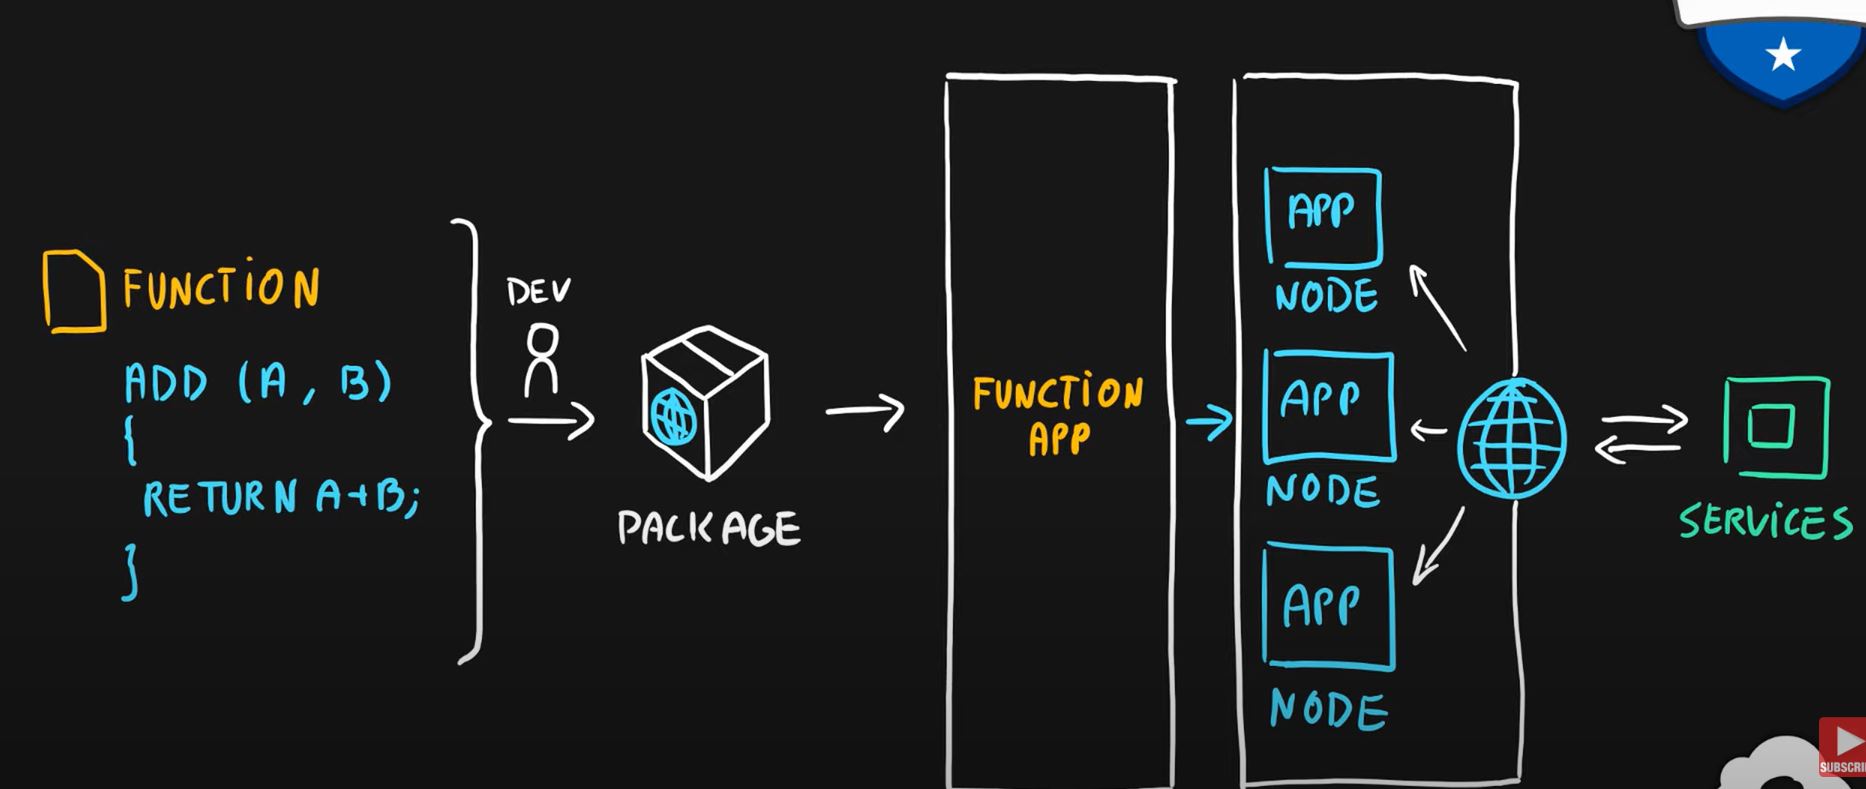 FUNCTION
ADD (A, B)
{
RETURN A+B;
}
DEV
PACKAGE
FUNCTION
APP
APP
NODE
APP
NODE
APP
NODE
SERVICES